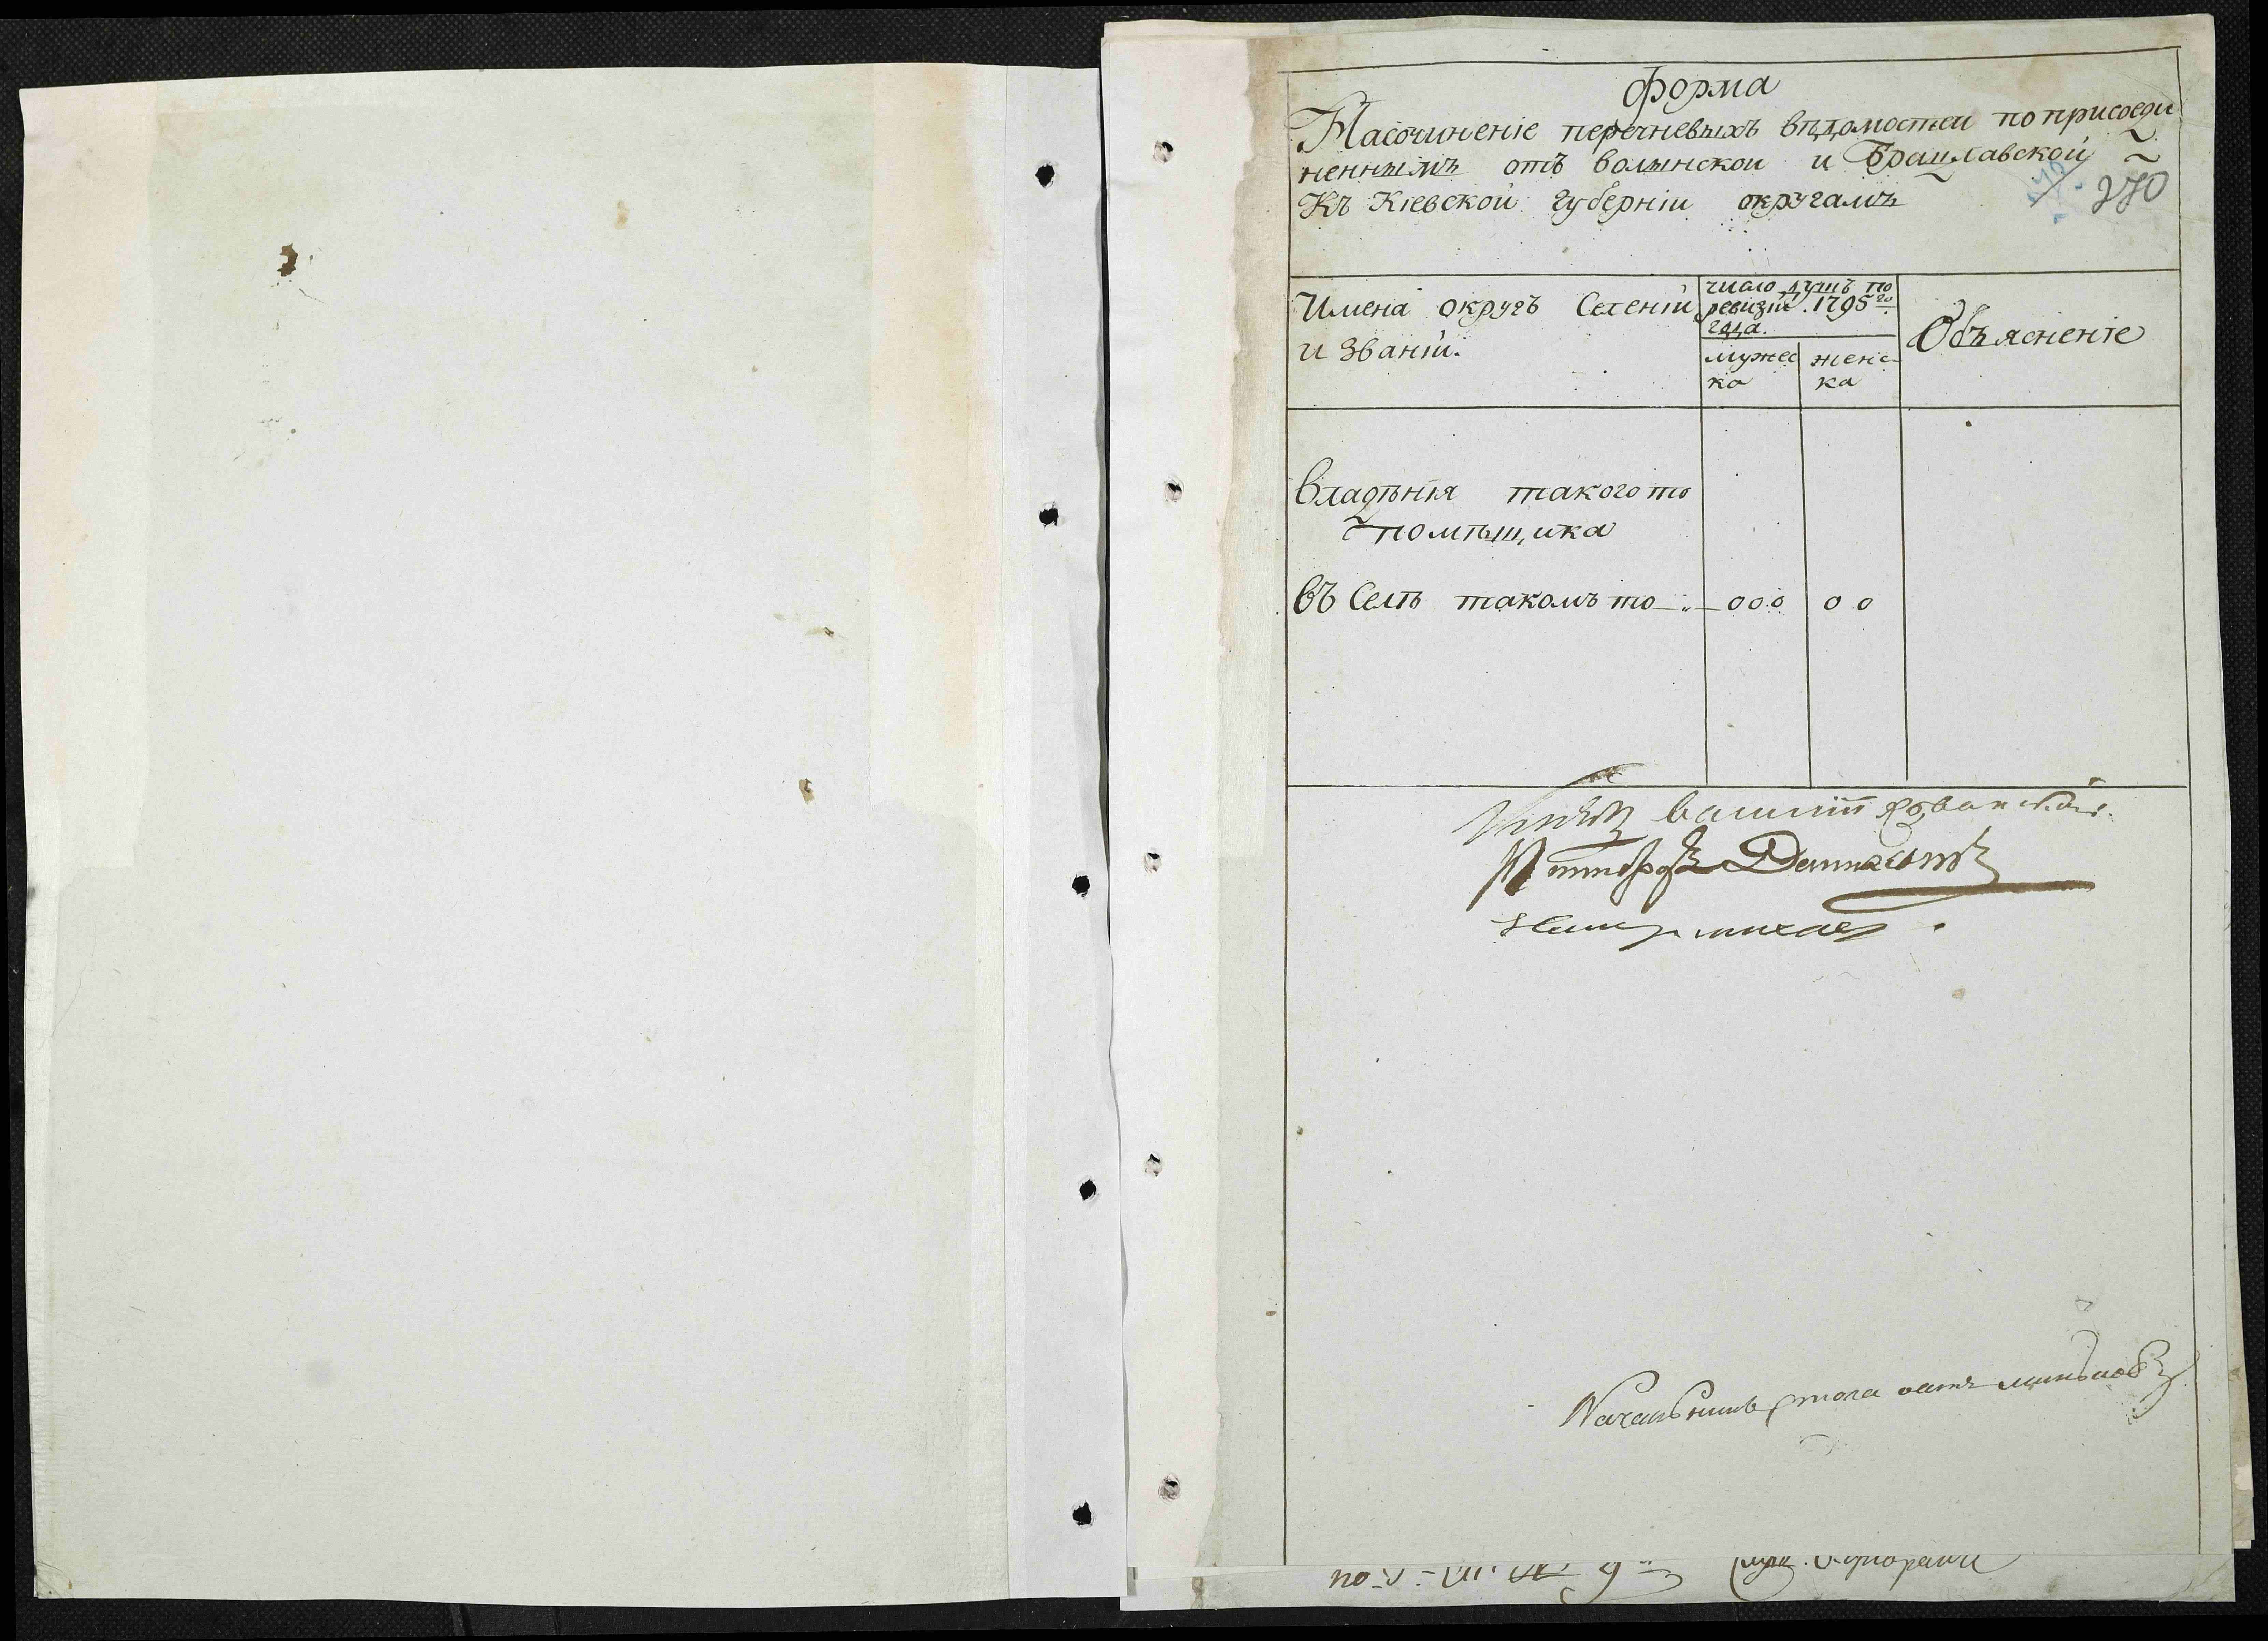 Форма
На сочиненіе перечневыхъ вѣдомостей по присоеди
неннымъ отъ волынской и Брацлавской
Къ Кіевской губерніи округамъ
270
Имена округъ Селеній
и званій.
число душъ по
ревизіи 1795го
года.
мужес
ка
женс-
ка
Объясненіе
владѣнія такого то
помѣщика
въ Селѣ такомъ то 000 00
Князь василий хованский.
Начальникъ стола